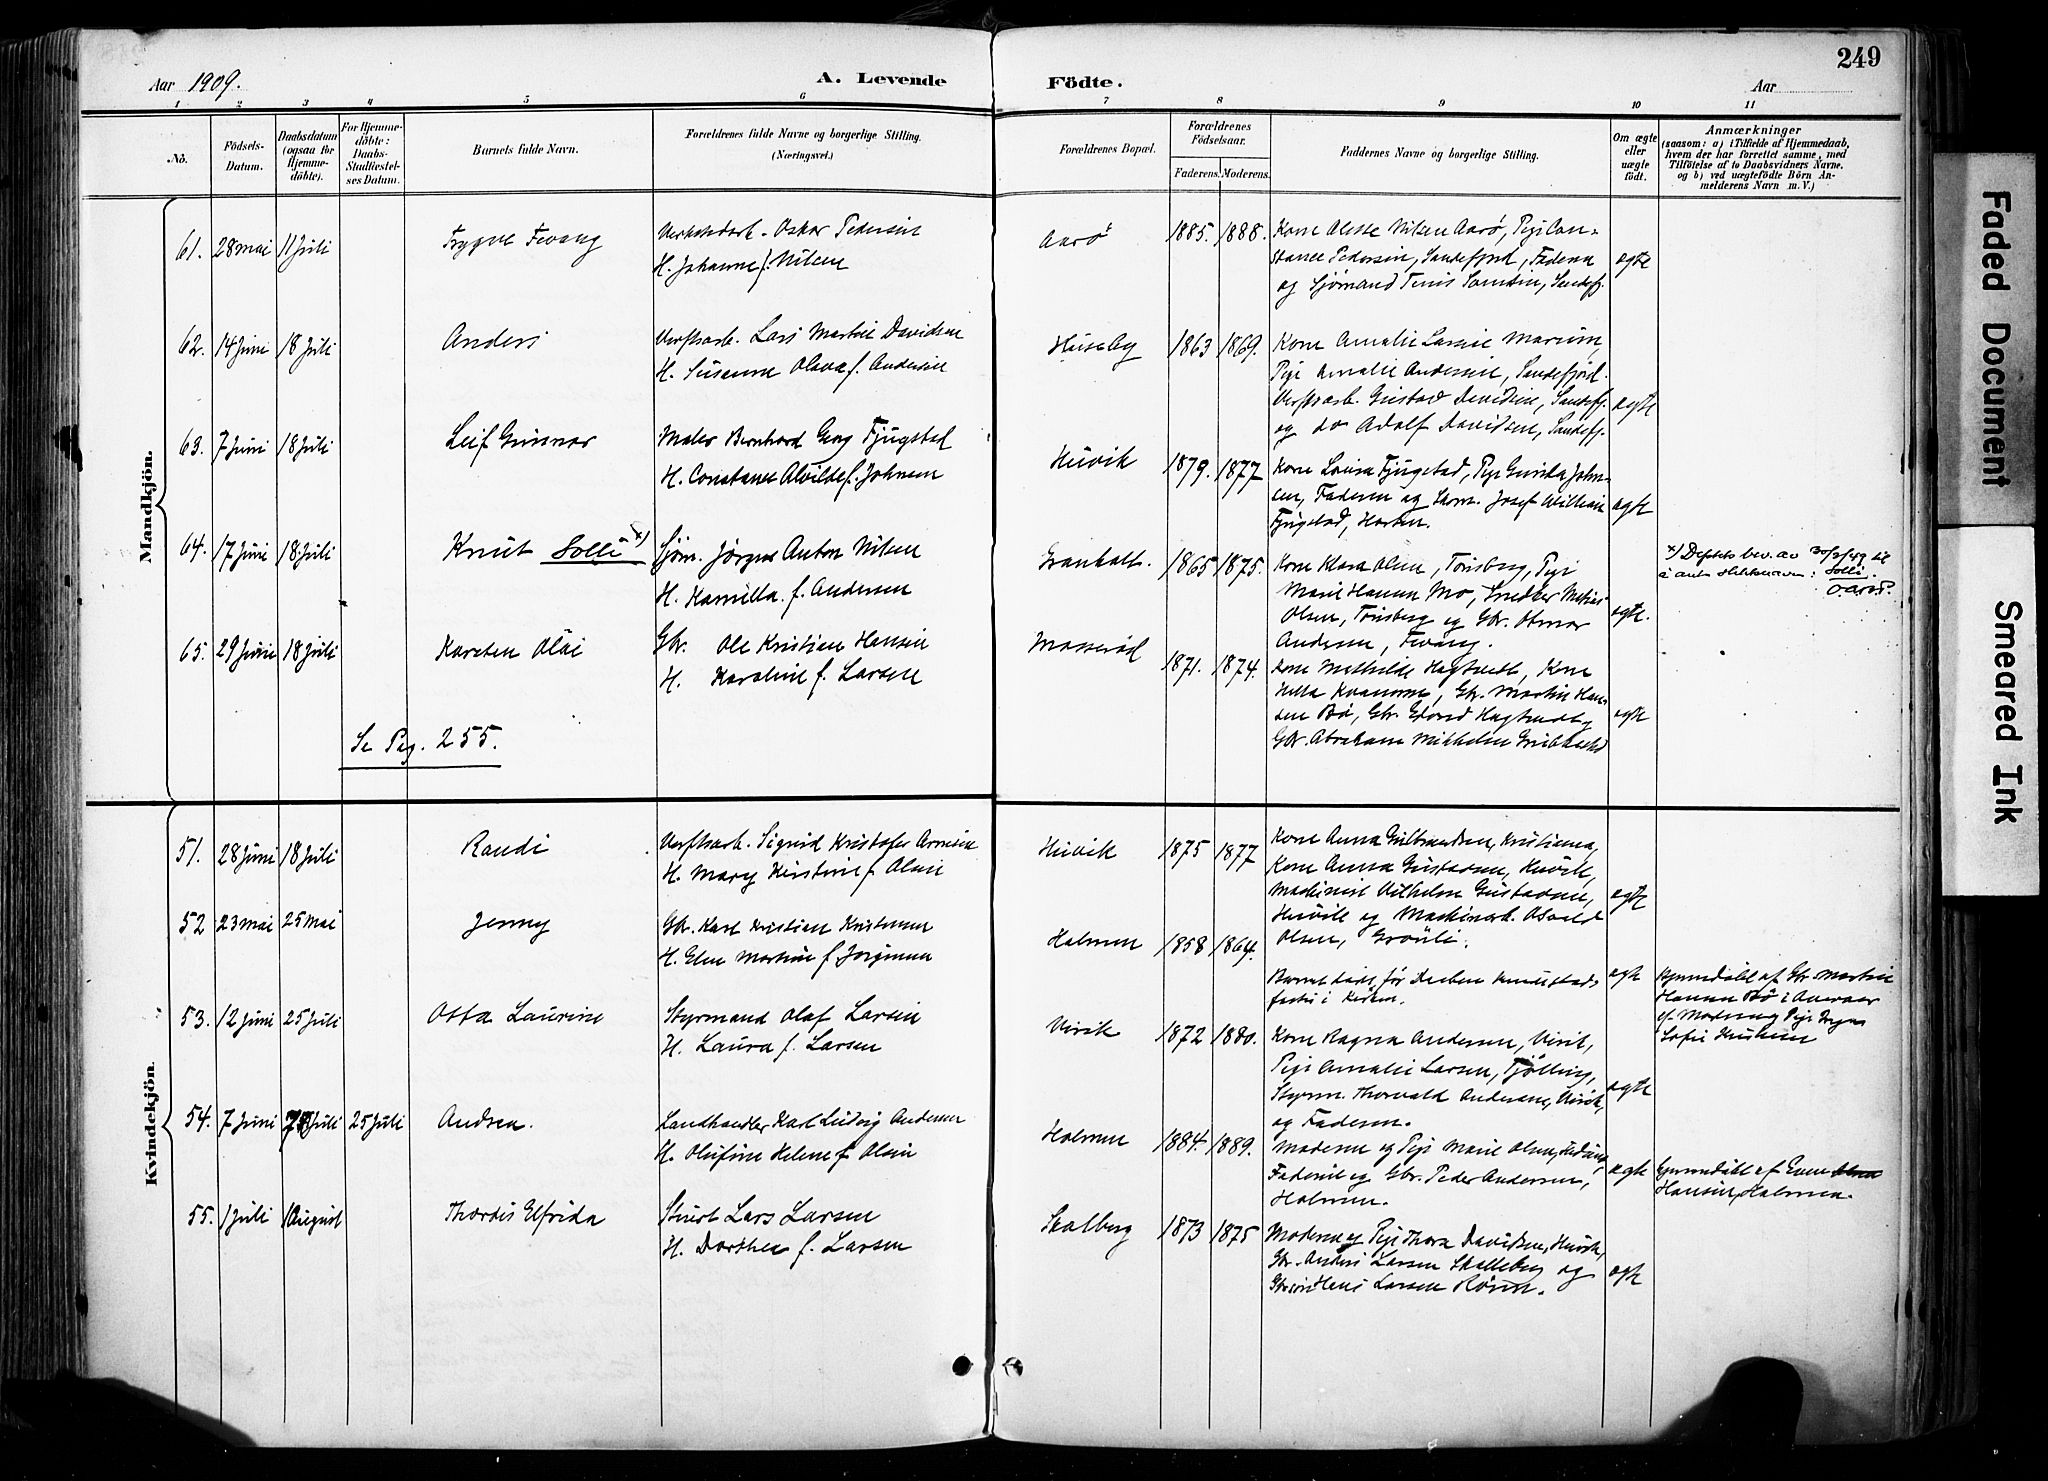 249
Aar 1909.
A. Levende
Födte.
Aar
1 2 3 4 5 6 7 8 9 10 11
No.
Födsels-
Datum.
Daabsdatum
(ogsaa for
Hjemme-
döbte).
For Hjemme-
döbte:
Daabs-
Stadfæstel-
ses Datum.
Barnets fulde Navn.
Forældrenes fulde Navne og borgerlige Stilling.
(Næringsvei.)
Forældrenes Bopæl.
Forældrenes
Födselsaar.
Faderens. Moderens.
Faddernes Navne og borgerlige Stilling.
Om ægte
eller
uægte
födt.
Anmærkninger
(saasom: a) i Tilfælde af Hjemmedaab,
hvem der har forrettet samme, med
Tilföielse af to Daabsvidners Navne,
og b) ved uægtefödte Börn An-
melderens Navn m. V.)
Mandkjön.
61. 28 mai 11 Juli
Trygve Fevang
Oskar Pedersen
H. Johanne f. Nilsen
Aarø
1885. 1888.
Kone Nilsen Aarø, Pige Con-
stance Pedersen, Sandefjord, Faderen
og Sjømand
ægte
62. 14 Juni 18 Juli
Anders
Verftsarb. Lars Martin Davidsen
H. Susanne Olava f. Andersen
Huseby
1863 1869.
Kone Amalie Larsen
Pige Amalie Andersen, Sandefjord.
Verftsarb. Gustav Davidsen, Sandefj.
og do Adolf Davidsen, Sandefj.
ægte
63. 7 Juni 18 Juli
Leif Gunnar
Maler Bernhard Georg Fjugstad
H. Constance Alvilde f. Johnsen
Husvik
1879. 1877
Kone Lovisa Fjugstad, Pige Gunda John-
sen, Faderen og Josef William
Fjugstad, Horten.
ægte
64. 17 Juni 18 Juli
Knut Solli x)
Sjøm. Jørgen Anton Nilsen
H. Kamilla f. Andersen
Granholt.
1865 1875.
Kone Klara Olsen, Tønsberg, Pige
Marie Hanna Mo, Snedker
Olsen, Tønsberg og Gbr. Otmar
Andersen, Fevang.
ægte.
x) bev. av 30/3/49 til
Solli.
65. 29 Juni 18 juli
Karsten Olai
Gbr. Ole Kristian Hansen
H. Karoline f. Larsen
Massorød
1871. 1874.
Kone Mathilde Hagtvedt, Kone
Gbr. Martin Han-
sen Bø, Gbr. Hagtvedt og
Gbr. Abraham Mikkelsen
ægte
Se Pag. 255.
Kvindekjön.
51. 28 Juni 18 Juli
Randi
Verftsarb. Sigurd Kristofer
H. Mary Kristine f. Olsen
Husvik
1875 1877
Kone Anna Gulbrandsen, Kristiania,
Kone Anna Gustavsen, Husvik,
Maskinist Vilhelm Gustavsen,
Husvik og Maskinarb. Osvald
Olsen, Grønli.
ægte
52 23 mai 25 mai
Jenny
Gbr. Karl Kristian Kristensen
H. Elen Martine f. Jørgensen
Holmen
1858 1864.
Barnet døde før Daaben kunde stad-
fæstes i Kirken.
ægte
Hjemmedøbt af Gbr. Martin
Hansen Bø i Nærvær
af Moderen og Pige
Sofie
53. 12 Juni 25 Juli
Asta Laurine
Styrmand Olaf Larsen
H. Laura f. Larsen
Virik
1872 1880.
Kone Ragna Andersen, Virik,
Pige Amalie Larsen, Tjølling,
Styrm. Thorvald Andersen, Virik,
og Faderen.
ægte
54. 7 Juni 7 Juli 25 Juli
Andrea.
Landhandler Karl Ludvig Andersen
H. Olufine Helene f. Olsen
Holmen
1884. 1889.
Moderen og Pige Marie Olsen,
Faderen og Gbr. Peder Andersen,
Holmen.
ægte
Hjemmedøbt af Even
Hansen, Holmen.
55. 1 Juli 1 August
Thordis Elfrida
Stuert Lars Larsen
H. Dorthea f. Larsen
Skalberg
1873 1875
Moderen og Pige Thora Davidsen, Husvik,
Gbr. Anders Larsen Skalleberg og
Gbrsøn Hans Larsen
ægte
Faded Document
Smeared Ink